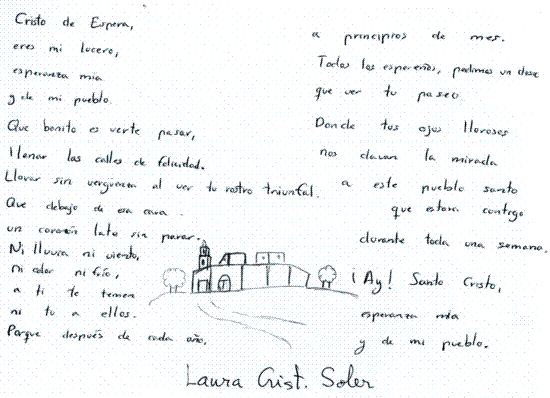 Cristo de Espera,
eres mi lucero,
esperanza mia
y de mi pueblo.
Que bonito es verte pasar,
llenar las calles de felicidad.
Llorar sin verguenza al ver tu rostro triunfal.
Que debajo de esa cara
un corazón late sin parar.
Ni lluvia ni viento,
ni calor ni frío,
a ti te temen
ni tu a ellos.
Porque después de cada año,
a principios de mes.
Todos los espereños, pedimos un deseo
que ver tu paseo
Donde tus ojos llorosos
nos clavan la mirada
a este pueblo santo
que estara contigo
durante toda una semana.
¡Ay! Santo Cristo,
esperanza mia
y de mi pueblo.
Laura Crist. Soler